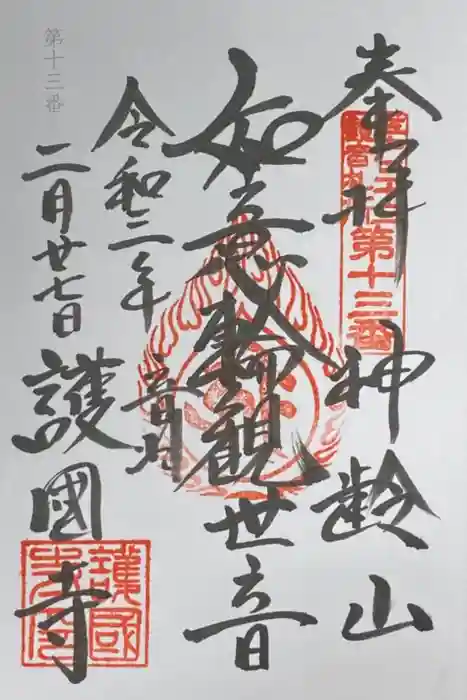 奉拝
神齢山
第十三番
如意輪観世音
令和三年
二月廿七日
音羽
護國寺
第十三番